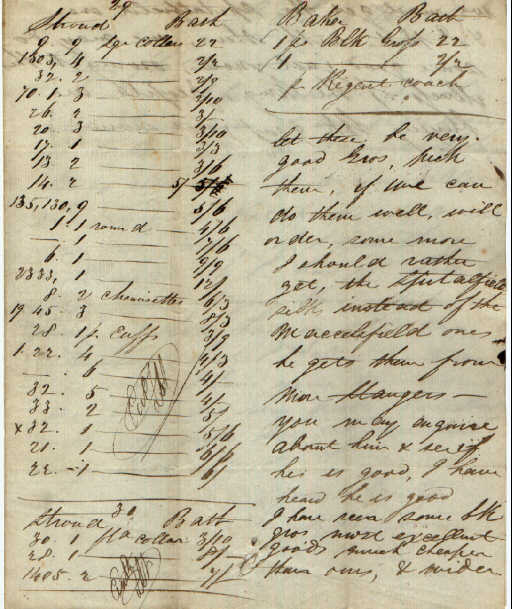 29
Stroud Bath
9 9 lge collars 22
1303, 4 2/2
32. 2 2/9
70. 1. 3 2/10
26. 2 3/
20. 3 3/10
17. 1 3/3
13 2 3/6
14. 2 5/
135,130, 9 5/6
1. 1 round 4/6
— 1 7/6
6. 1 9/9
2333, 1 12/
8. 2 chemisettes 6/3
19 45. 3 8/3
28 1 p. Cuffs 3/9
1. 22. 4 4/3
—. 6 4/
32. 5 4/
33. 2 5/
x 32. 1 5/6
21. 1 6/6
22. - 1 6/
30
Stroud Bath
30 1 collar 3/10
28. 1
1405. 2
Baker Bath
1 ps Blk Gros 22
1 2/2
p Regent coach
let these be very
good Gros, pick
them, if we can
do them well, will
order, some more
I should rather
get, the Spitalfield
silk instead of the
Maccelsfield ones
he gets them from
Mon Stangers —
you may enquire
about him & see if
he is good, I have
heard he is good
I have seen some blk
gros most excellent
goods much cheaper
than ours, & wider